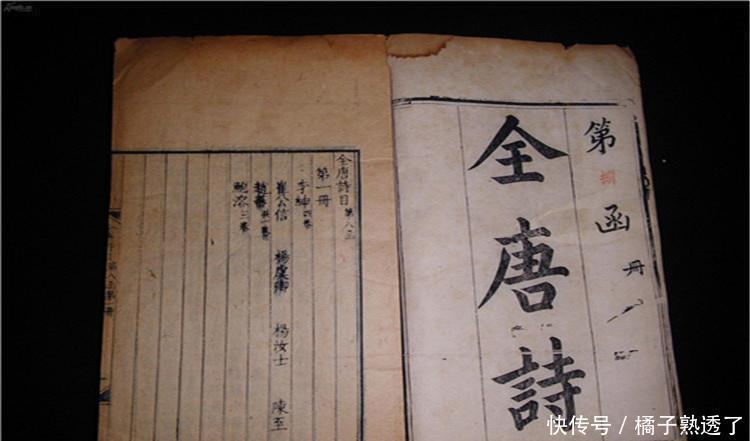 第 函 册
全唐詩
全唐詩目 第八函
第一冊
李紳 四卷
崔公信 楊虞卿 楊汝士 陳至
鮑溶 三卷
快传号 / 橘子熟透了